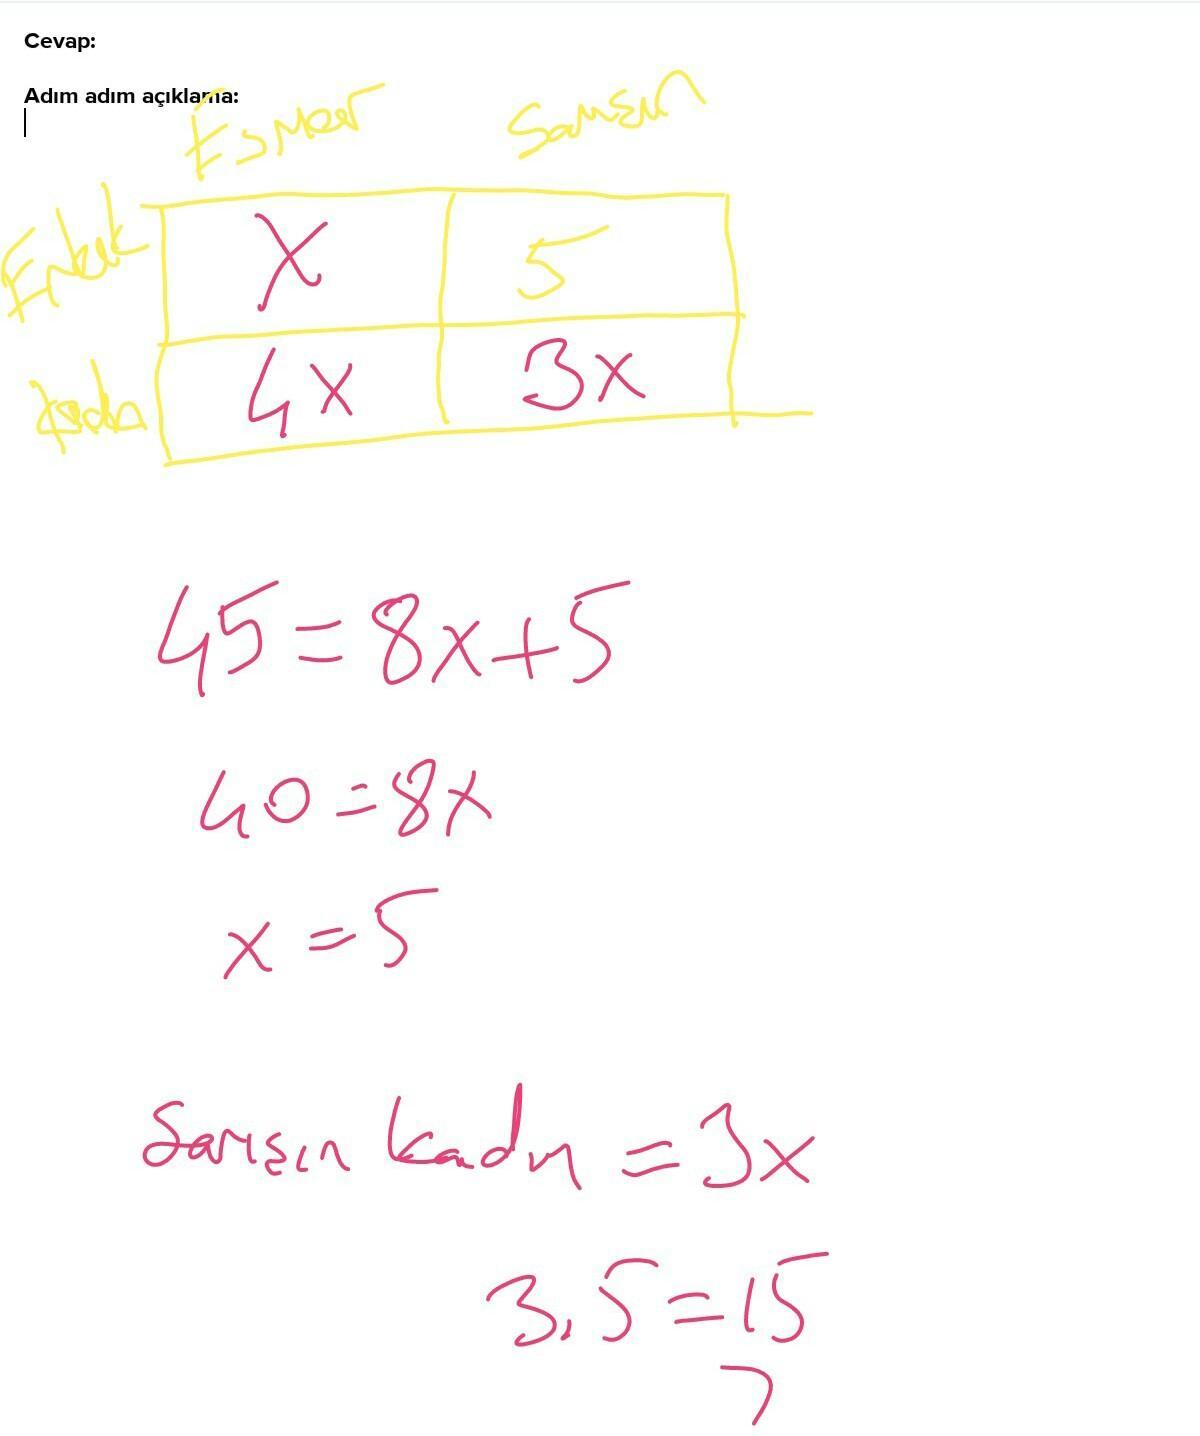 Cevap:
Adım adım açıklama:
Esmer Sarışın
Erkek x 5
Kadın 4x 3x
45=8x+5
40=8x
x=5
Sarışın kadın=3x
3.5=15